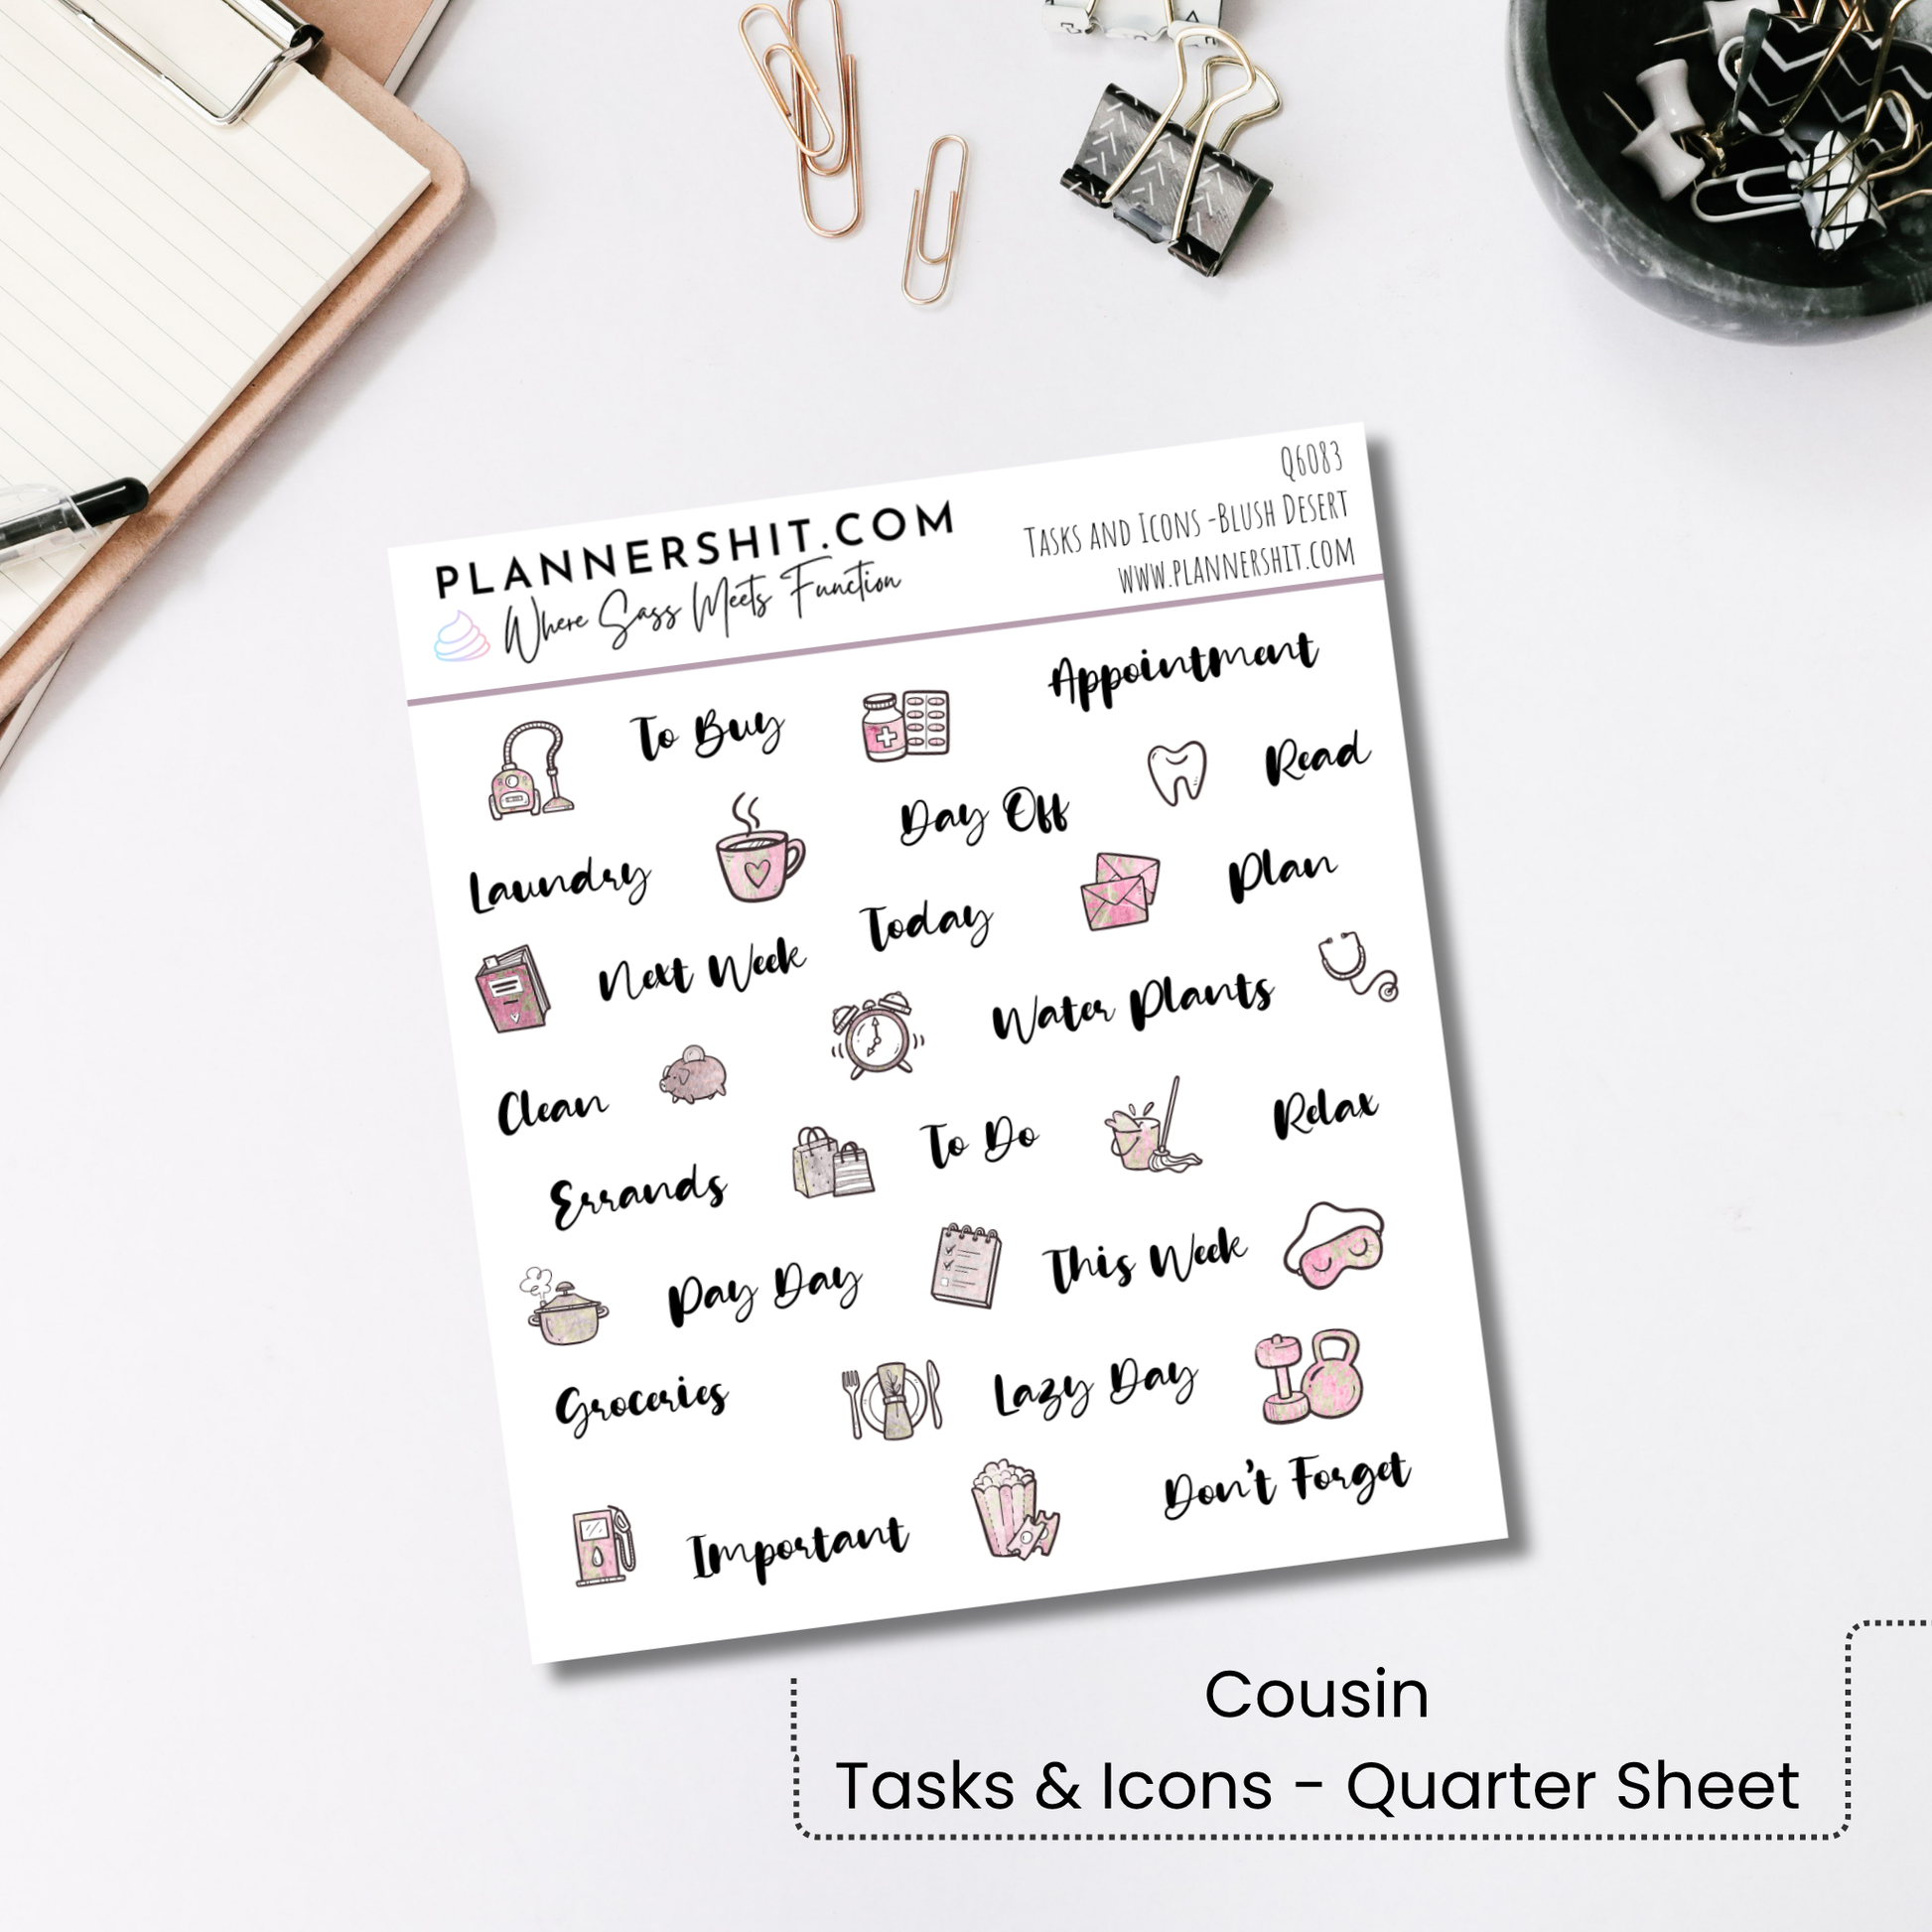 PLANNERSHIT.COM
Where Sass Meets Function
Q6083
TASKS AND ICONS -BLUSH DESERT
WWW.PLANNERSHIT.COM
Appointment
To Buy
Read
Day Off
Laundry
Plan
Today
Next Week
Water Plants
Clean
Relax
To Do
Errands
This Week
Pay Day
Lazy Day
Groceries
Don't Forget
Important
Cousin
Tasks & Icons - Quarter Sheet